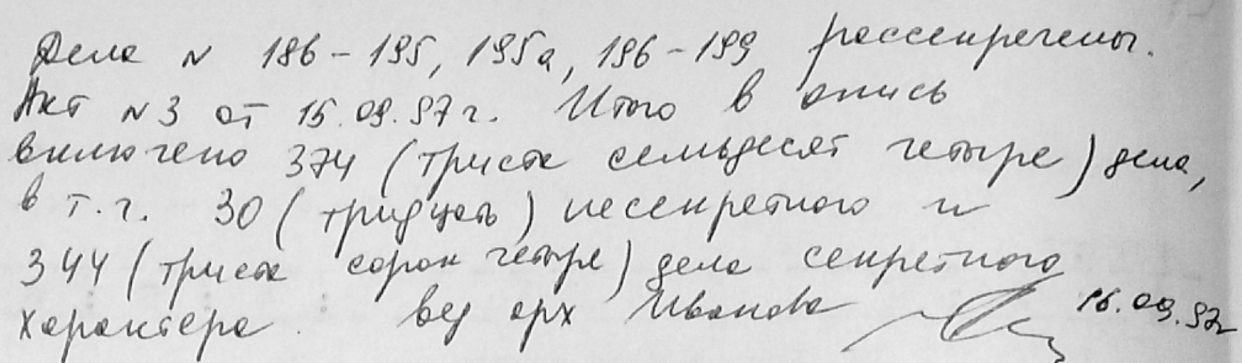 Дела N 186-195, 195а, 196-199 рассекречены.
Акт N3 от 15.09.97г. Итого в опись
включено 374 (триста семьдесят четыре) дела,
в т.ч. 30 (тридцать) несекретного и
344 (триста сорок четыре) дела секретного
характера. вед арх Иванова 16.09.97г